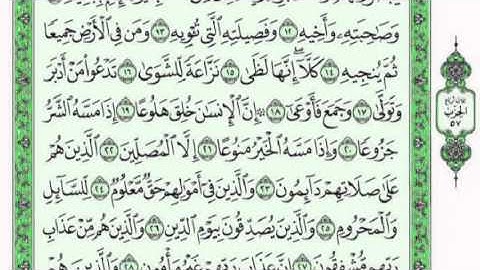 وَصَٰحِبَتِهِۦ وَأَخِيهِ ١٢ وَفَصِيلَتِهِ ٱلَّتِي تُـْٔوِيهِ ١٣ وَمَن فِي ٱلْأَرْضِ جَمِيعًا
ثُمَّ يُنجِيهِ ١٤ كَلَّآ ۖ إِنَّهَا لَظَىٰ ١٥ نَزَّاعَةً لِّلشَّوَىٰ ١٦ تَدْعُوا۟ مَنْ أَدْبَرَ
وَتَوَلَّىٰ ١٧ وَجَمَعَ فَأَوْعَىٰٓ ١٨ ۞ إِنَّ ٱلْإِنسَٰنَ خُلِقَ هَلُوعًا ١٩ إِذَا مَسَّهُ ٱلشَّرُّ
جَزُوعًا ٢٠ وَإِذَا مَسَّهُ ٱلْخَيْرُ مَنُوعًا ٢١ إِلَّا ٱلْمُصَلِّينَ ٢٢ ٱلَّذِينَ هُمْ
عَلَىٰ صَلَاتِهِمْ دَآئِمُونَ ٢٣ وَٱلَّذِينَ فِيٓ أَمْوَٰلِهِمْ حَقٌّ مَّعْلُومٌ ٢٤ لِّلسَّآئِلِ
وَٱلْمَحْرُومِ ٢٥ وَٱلَّذِينَ يُصَدِّقُونَ بِيَوْمِ ٱلدِّينِ ٢٦ وَٱلَّذِينَ هُم مِّنْ عَذَابِ
رَبِّهِم مُّشْفِقُونَ ٢٧ إِنَّ عَذَابَ رَبِّهِمْ غَيْرُ مَأْمُونٍ ٢٨ وَٱلَّذِينَ هُمْ
الحزب
٥٧